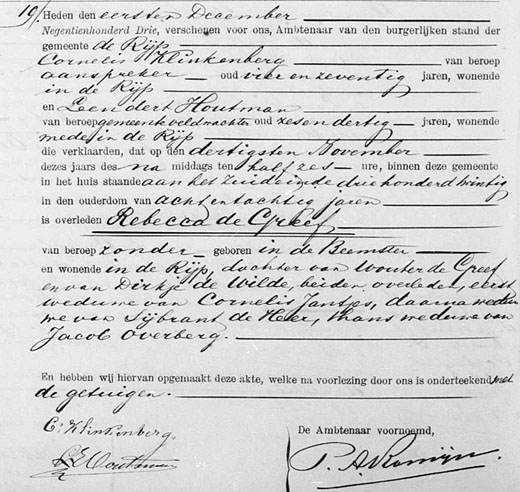 19/ Heden den eersten December
Negentienhonderd Drie, verschenen voor ons, Ambtenaar van den burgerlijken stand der
gemeente de Rijp
Cornelis Klinkenberg van beroep
aanspreker oud vier en zeventig jaren, wonende
in de Rijp
en Leendert Houtman
van beroep gemeenteveldwachter oud zesendertig jaren, wonende
mede in de Rijp
die verklaarden, dat op den dertigsten November
dezes jaars des na middags ten half zes ure, binnen deze gemeente
in het huis staande aan het Zuideinde driehonderd twintig
in den ouderdom van achtentachtig jaren
is overleden Rebecca de Greef
van beroep zonder geboren in de Beemster
en wonende in de Rijp, dochter van Wouter de Greef
en van Dirkje de Wilde, beiden overleden, eerst
weduwe van Cornelis Jantjes, daarna wedu
we van Sijbrant de Heer, thans weduwe van
Jacob Overberg.
En hebben wij hiervan opgemaakt deze akte, welke na voorlezing door ons is onderteekend met
de getuigen.
C. Klinkenberg.
De Ambtenaar voornoemd,
L. Houtman
P. A. Romijn